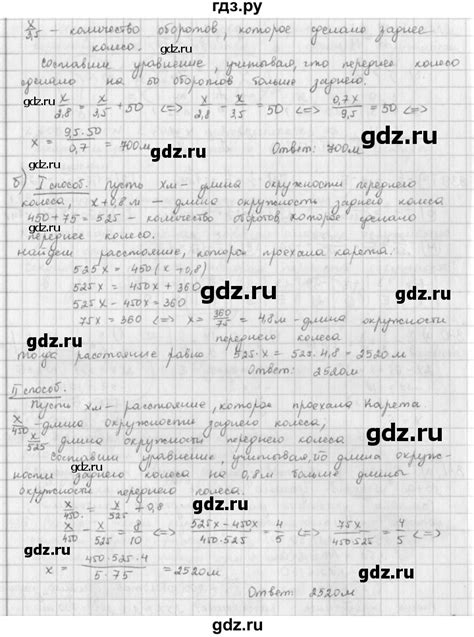 гдз.ру
x/3,5 – количество оборотов, которое сделано заднее
колесо.
Составим уравнение, учитывая, что переднее колесо
сделано на 50 оборотов больше заднего.
x/2,8 = x/3,5 + 50 <=> x/2,8 - x/3,5 = 50 <=> 0,7x/9,5 = 50 <=>
x = 9,5·50/0,7 = 700м
Ответ: 700м
б) I способ. Пусть xм – длина окружности переднего
колеса, x+0,8м – длина окружности заднего колеса
450+75 = 525 – количество оборотов которое сделано
переднее колесо.
найдем расстояние, которое проехала карета:
525x = 450(x+0,8)
525x = 450x + 360
525x - 450x = 360
75x = 360 <=> x = 360/75 = 4,8м – длина окружности
переднего колеса
Тогда расстояние равно 525·x = 525·4,8 = 2520м
Ответ: 2520м
II способ.
Пусть xм – расстояние, которое проехала карета
x/450 – длина окружности заднего колеса,
x/525 – длина окружности переднего колеса
Составим уравнение, учитывая, что длина окруж-
ности заднего колеса на 0,8м больше длины
окружности переднего колеса.
x/450 = x/525 + 0,8
x/450 - x/525 = 8/10 <=> 525x-450x/450·525 = 4/5 <=> 75x/450·525 = 4/5 <=>
x = 450·525·4/5·75 = 2520м
Ответ: 2520м
gdz.ru
gdz.ru
gdz.ru
gdz.ru
gdz.ru
gdz.ru
gdz.ru
gdz.ru
gdz.ru
gdz.ru
gdz.ru
gdz.ru